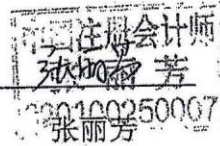 中国注册会计师
张丽芳
330100250007
张丽芳